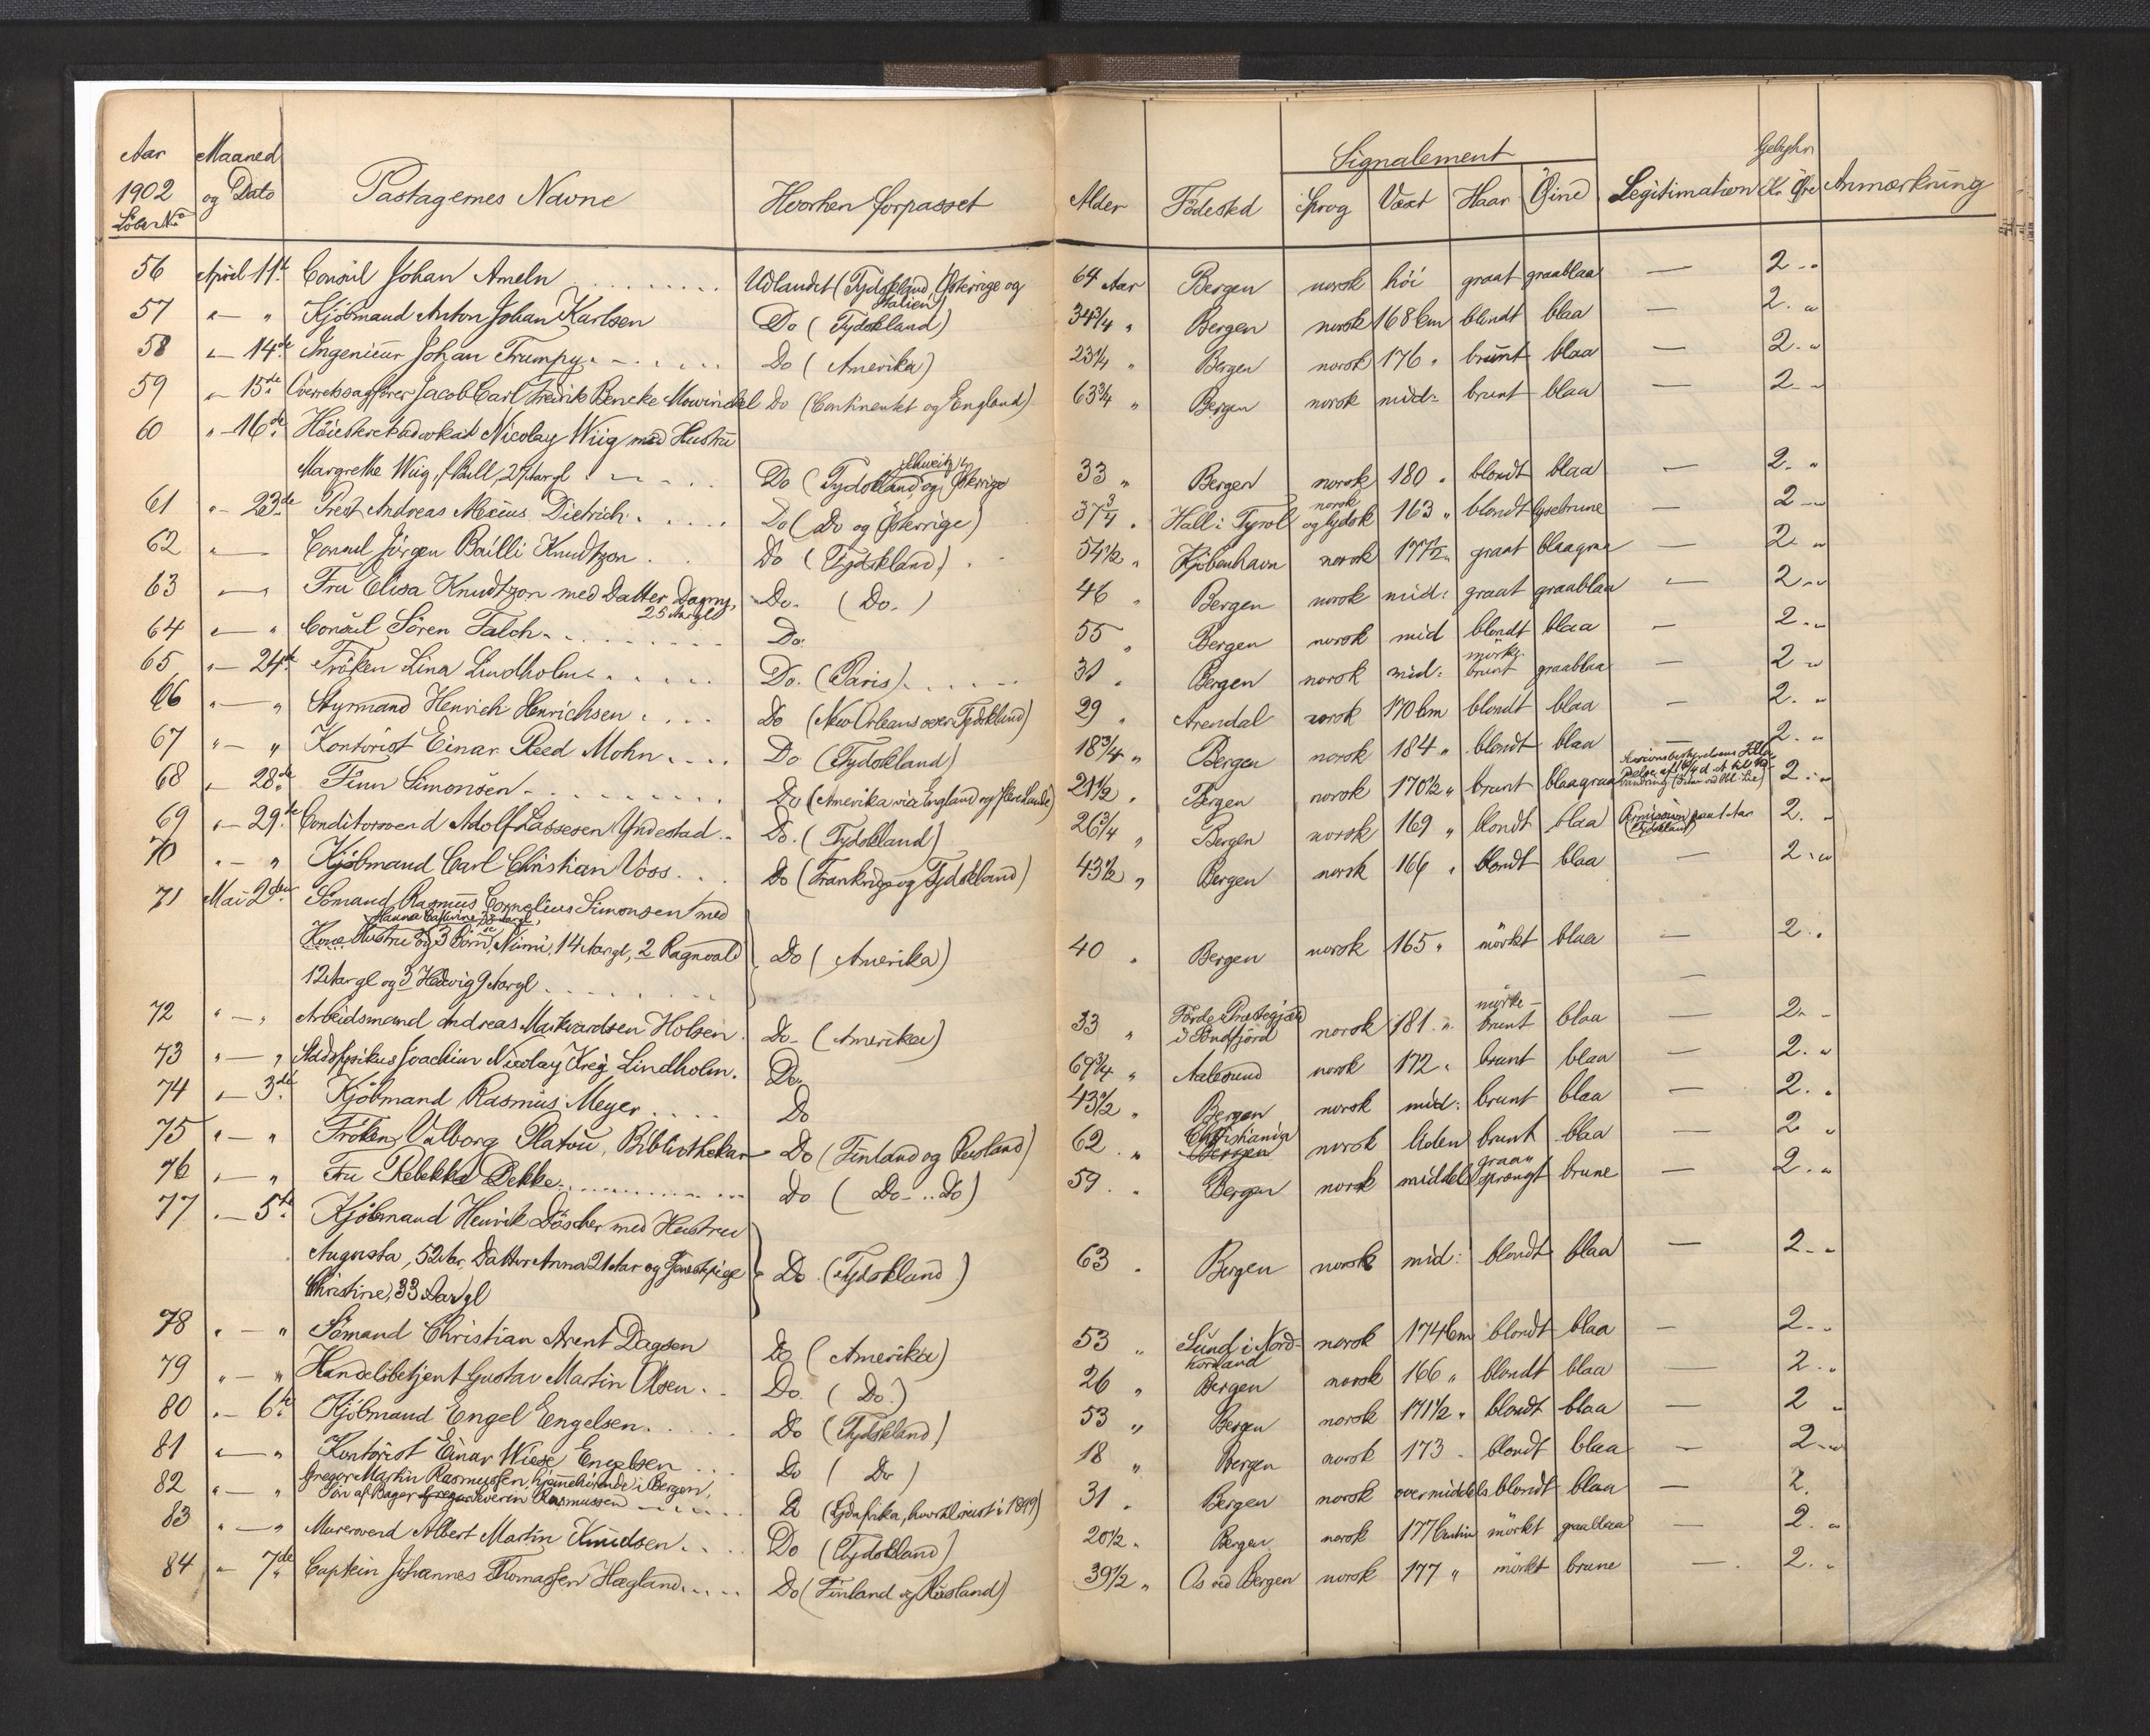 Aar Maaned Signalement Gebyhr
1902 og Dato Pastagernes Navne Hvorhen forpasset Alder Födested Sprog Vext Haar Øine Legitimation Kr Øre Anmærkning
Löbe No
56 April 11te Consul Johan Ameln Udlandet (Tydskland, Österrige og Italien) 64 Aar Bergen norsk höi graat graablaa — 2 - "
57 " — " Kjöbmand Anton Johan Karlsen Do (Tydskland) 34 3/4 " Bergen norsk 168 Cm blondt blaa — 2 . "
58 " — 14de Ingeniör Johan Trumpy Do (Amerika) 23 1/4 " Bergen norsk 176 " brunt blaa — 2 - "
59 " — 15de Overretssagförer Jacob Carl Fredrik Beneke Mowinckel Do (Continentet og England) 63 3/4 " Bergen norsk mid: brunt blaa — 2 - "
60 " — 16de Höiesteretsadvokat Nicolay Wiig med Hustru
Margrethe Wiig, f Bull, 27 Aar gl Do (Tydskland, Schweitz og Österrige 33 " Bergen norsk 180 " blondt blaa — 2 . "
61 " — 23de Prest Andreas Dietrich Do (Do og Österrige) 37 3/4 " Hall i Tyrol norsk og tydsk 163 " blondt lysebrune — 2 - "
62 " — Consul Jörgen Bailli Knudtzon Do (Tydskland) 54 1/2 " Kjöbenhavn norsk 177 1/2 " graat blaagraa — 2 "
63 " — Fru Elisa Knudtzon med Datter Dagny, 25 Aar gl Do. (Do.) 46 " Bergen norsk mid: graat graablaa — 2 - "
64 " — " Consul Sören Falch Do. 55 " Bergen norsk mid blondt blaa — 2 . "
65 " — 24de Fröken Lina Lindholm Do. (Paris) 31 " Bergen norsk mid: mörke brunt graablaa — 2 - "
66 " — " Styrmand Henrich Henrichsen Do (New Orleans over Tydskland) 29 " Arendal norsk 170 Cm blondt blaa — 2 . "
67 " — " Kontorist Einar Reed Mohn Do (Tydskland) 18 3/4 " Bergen norsk 184 " blondt blaa — 2 . "
68 " — 28de Finn Simonsen Do (Amerika via England og flere Lande) 21 1/2 " Bergen norsk 170 1/2 " brunt blaagraa 2 . "
69 " — 29de Conditorsvend Adolf Lassesen Yndestad Do. (Tydskland) 26 3/4 " Bergen norsk 169 " blondt blaa Permission paa 1 Aar (Tydskland) 2 . "
70 " — " Kjöbmand Carl Christian Voss Do (Frankrige og Tydskland) 43 1/2 " Bergen norsk 166 " blondt blaa — 2 . "
71 Mai 2den Sömand Rasmus Cornelius Simonsen med
Kone Hustru Hanna Cathrine, 38 Aar gl, og 3 Börn, Nimi, 14 Aar gl, 2 Ragnvald Do (Amerika) 40 " Bergen norsk 165 " mörkt blaa — 2 . "
12 Aar gl og 3 Hedvig 9 Aar gl —
72 " — " Arbeidsmand Andreas Markvardsen Holsen Do. (Amerika) 33 " Förde Præstegjæld i Söndfjord norsk 181 " mörke-brunt blaa — 2 -
73 " — " Stadsfysikus Joachim Nicolay Kreg Lindholm Do. 69 3/4 " Aalesund norsk 172 " brunt blaa — 2 . "
74 " — 3de Kjöbmand Rasmus Meyer Do 43 1/2 " Bergen norsk mid: brunt blaa — 2 . "
75 " — " Fröken Valborg Platou, Bibliothekar Do (Finland og Rusland) 62 " Christiania Bergen norsk liden brunt blaa — 2 "
76 " — " Fru Rebekka Dekke Do (Do .. Do) 59 " Bergen norsk middels graasprængt brune — 2 . "
77 " — 5te Kjöbmand Henrik Döscher med Hustru
Augusta, 52 Aar, Datter Anna 21 Aar og Tjenestpige Do (Tydskland) 63 " Bergen norsk mid: blondt blaa — 2 - "
Christine, 33 Aar gl
78 " — " Sömand Christian Arent Dagsen Do (Amerika) 53 " Sund i Nordhordland norsk 174 Cm blondt blaa — 2 - "
79 " — " Handelsbetjent Gustav Martin Olsen Do. (Do.) 26 " Bergen norsk 166 " blondt blaa — 2 . "
80 " — 6te Kjöbmand Engel Engelsen Do (Tydskland) 53 " Bergen norsk 171 1/2 " blondt blaa — 2 "
81 " — " Kontorist Einar Wiese Engelsen Do (Do) 18 " Bergen norsk 173 " blondt blaa — 2 - "
82 " — " Gregor Martin Rasmussen, hjemmehörende i Bergen,
Sön af Bager Gregor Severin Rasmussen Do (Sydafrika, bortreist i 1899) 31 " Bergen norsk over middels blondt blaa — 2 .
83 " — " Murersvend Albert Martin Knudsen Do (Tydskland) 20 1/2 " Bergen norsk 177 Centim mörkt graablaa — 2 . "
84 " — 7de Captein Johannes Thomassen Hægland Do (Finland og Rusland) 39 1/2 " Os ved Bergen norsk 177 " mörkt brune — 2 . "